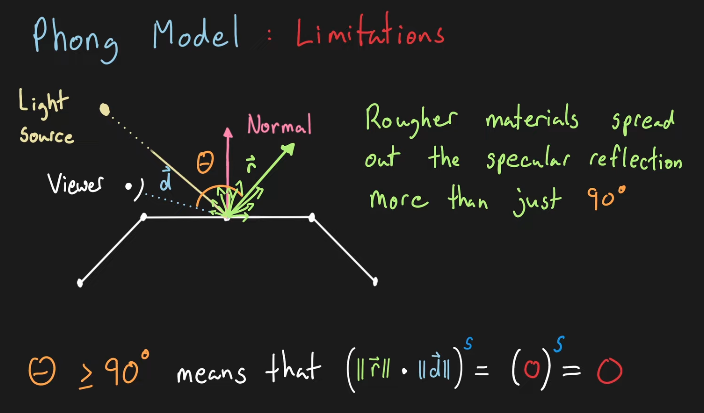 Phong Model : Limitations
Light
Source
Normal
θ
r⃗
Viewer
d⃗
Rougher materials spread
out the specular reflection
more than just 90°
θ ≥ 90° means that (‖r⃗‖ · ‖d⃗‖)ˢ = (0)ˢ = 0